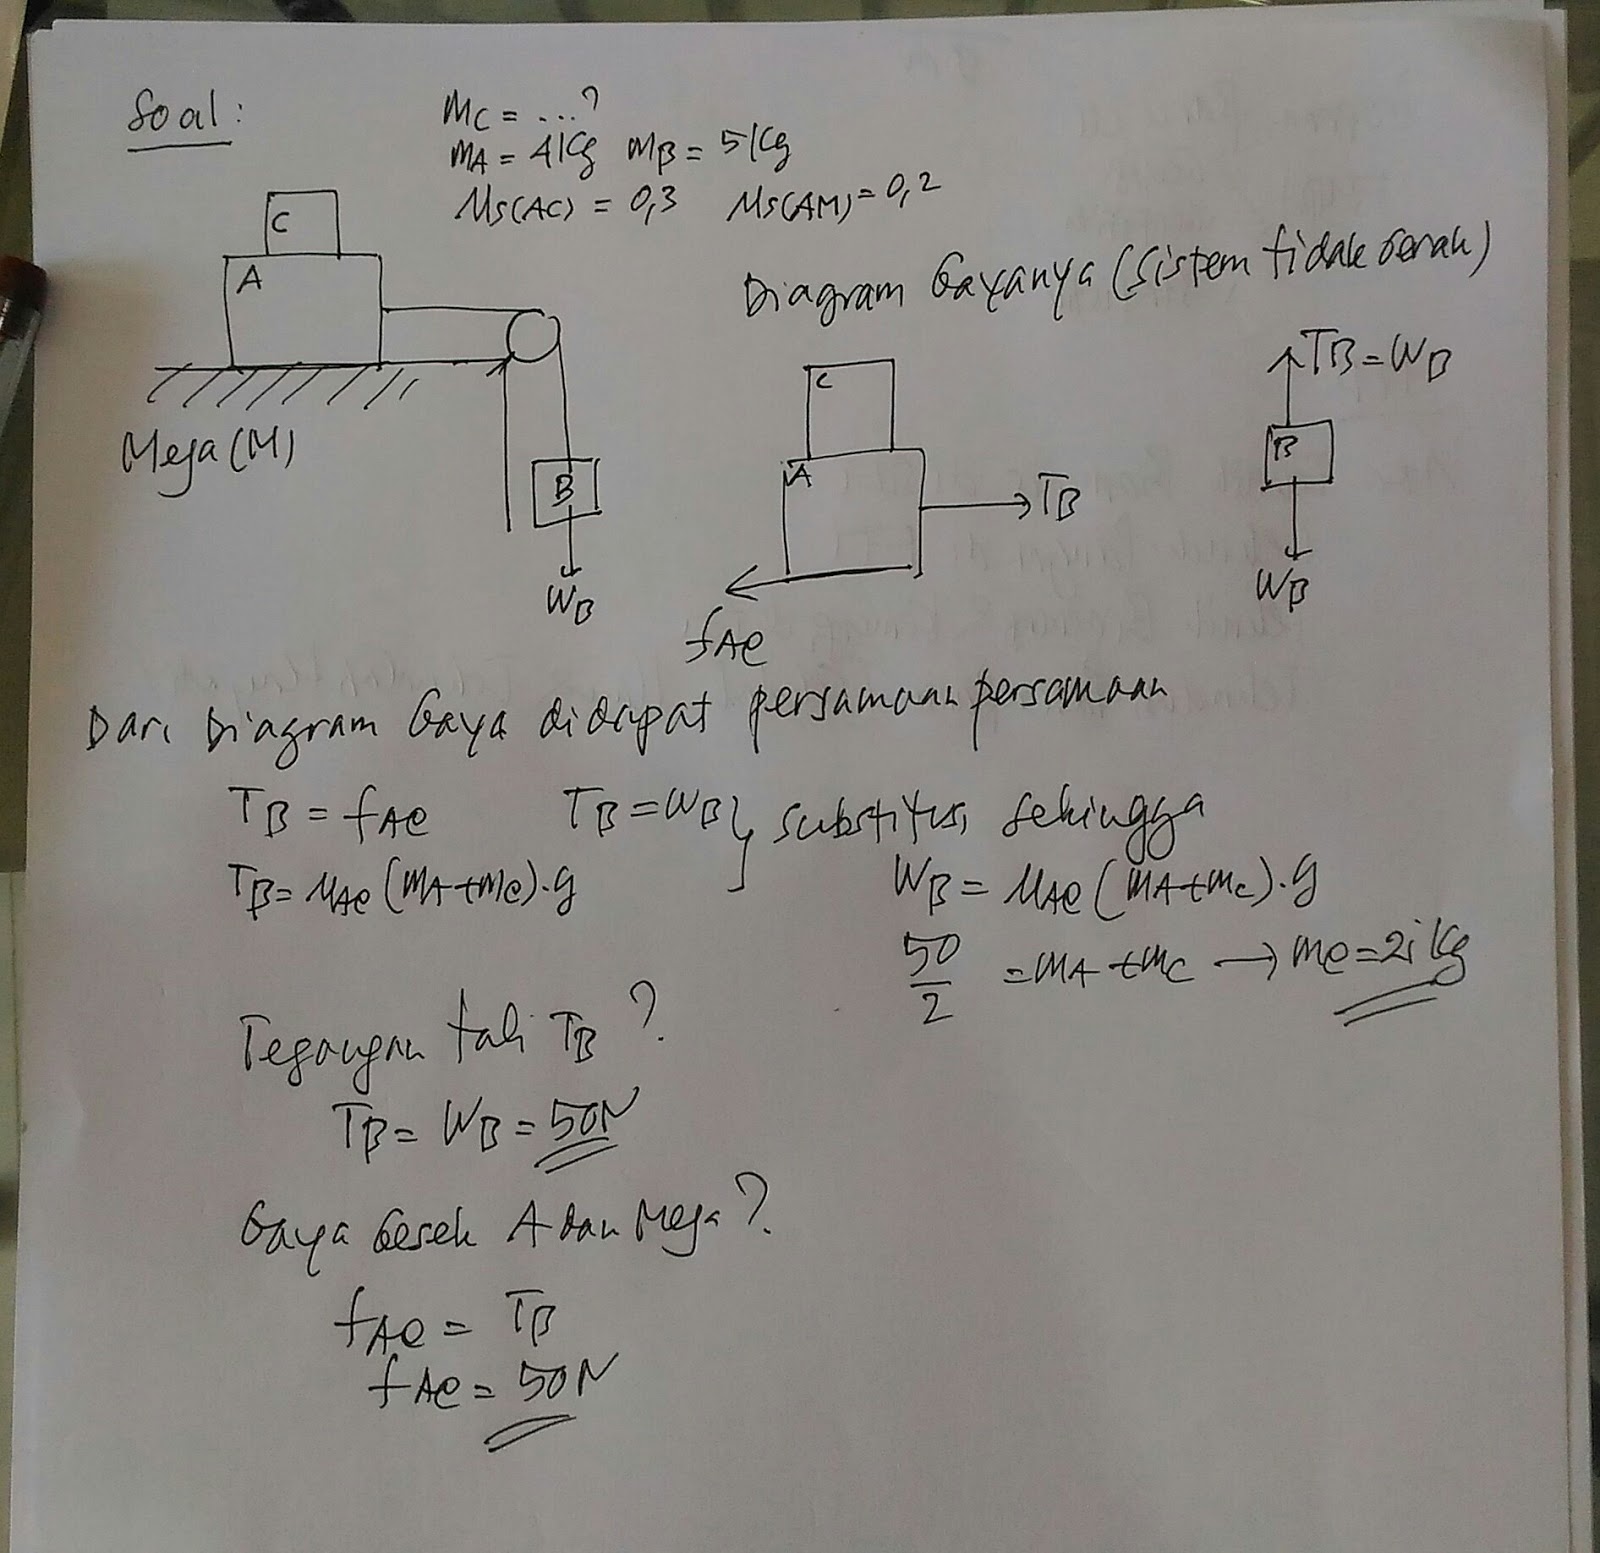 Soal:
mC = ...?
mA = 4 Kg mB = 5 Kg
μs(AC) = 0,3 μs(AM) = 0,2
C
A
Meja (M)
B
WB
Diagram Gayanya (sistem tidak Gerak)
C
A
TB
fAC
TB = WB
B
WB
Dari Diagram Gaya didapat persamaan persamaan
TB = fAC TB = WB } substitusi sehingga
TB = μAC (mA + mC) . g
WB = μAC (mA + mC) . g
50/2 = mA + mC → mC = 21 Kg
Tegangan tali TB ?
TB = WB = 50 N
Gaya Gesek A dan Meja ?
fAC = TB
fAC = 50 N